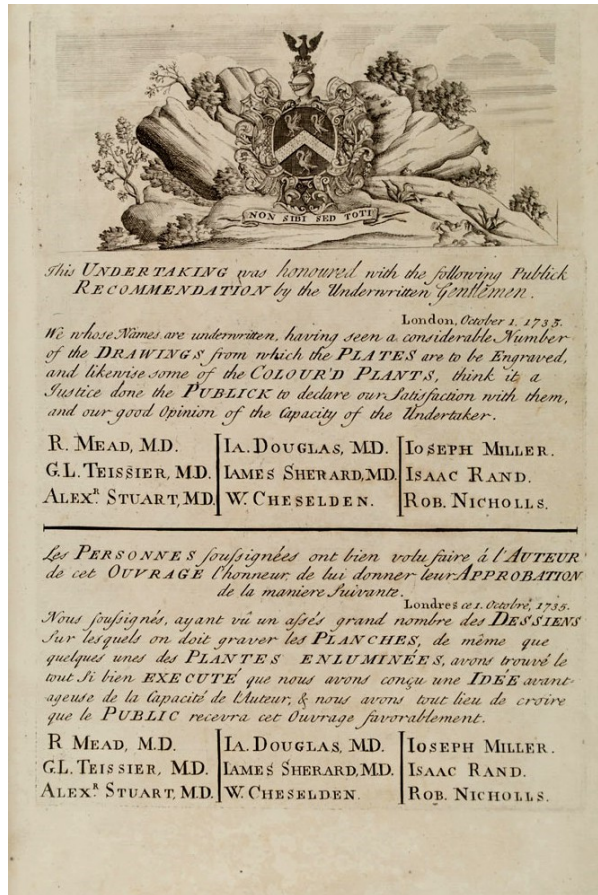 NON SIBI SED TOTI
This UNDERTAKING was honoured with the following Publick
RECOMMENDATION by the Underwritten Gentlemen.
London, October 1. 1735.
We whose Names are underwritten, having seen a considerable Number
of the DRAWINGS from which the PLATES are to be Engraved,
and likewise some of the COLOUR'D PLANTS, think it a
Justice done the PUBLICK to declare our Satisfaction with them,
and our good Opinion of the Capacity of the Undertaker.
R. MEAD, M.D. IA. DOUGLAS, M.D. IOSEPH MILLER.
G.L. TEISSIER, M.D. IAMES SHERARD, M.D. ISAAC RAND.
ALEX.R STUART, M.D. W. CHESELDEN. ROB. NICHOLLS.
Les PERSONNES soussignées ont bien volu faire á l'AUTEUR
de cet OUVRAGE l'honneur, de lui donner leur APPROBATION
de la maniere suivante.
Londres ce 1. Octobre, 1735.
Nous soussignés, ayant vû un assés grand nombre des DESSIENS
sur lesquels on doit graver les PLANCHES, de même que
quelques unes des PLANTES ENLUMINÉES, avons trouvé le
tout si bien EXECUTÉ que nous avons conçu une IDÉE avant-
ageuse de la Capacité de l'Auteur, & nous avons tout lieu de croire
que le PUBLIC recevra cet Ouvrage favorablement.
R MEAD, M.D. IA. DOUGLAS, M.D. IOSEPH MILLER.
G.L. TEISSIER, M.D. IAMES SHERARD, M.D. ISAAC RAND.
ALEX.R STUART, M.D. W. CHESELDEN. ROB. NICHOLLS.